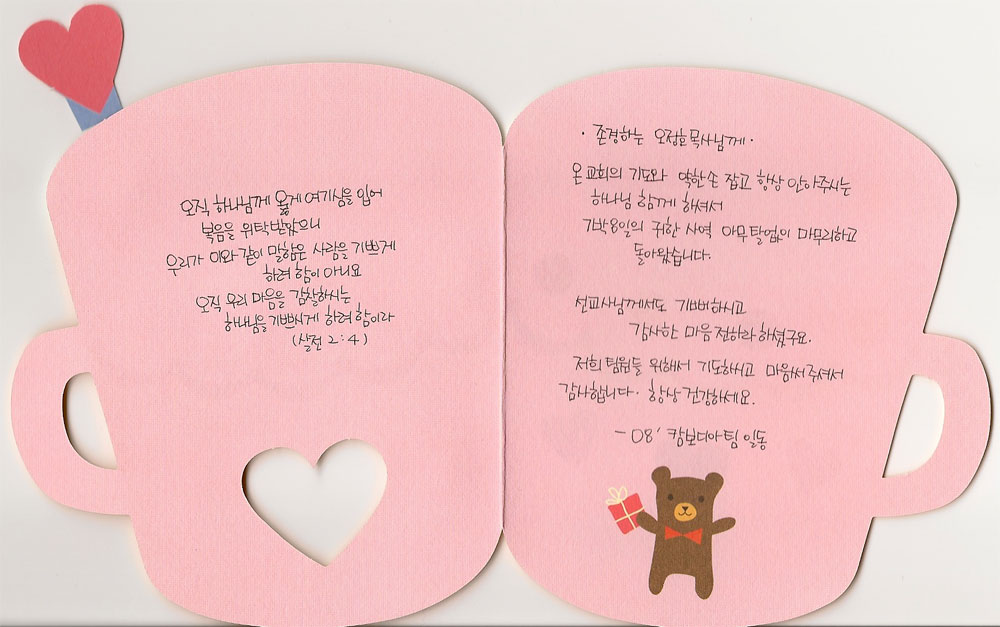 오직 하나님께 옳게 여기심을 입어
복음을 위탁받았으니
우리가 이와 같이 말함은 사람을 기쁘게
하려 함이 아니요
오직 우리 마음을 감찰하시는
하나님을 기쁘시게 하려 함이라
(살전 2:4)
· 존경하는 오정호 목사님께 ·
온 교회의 기도와 약한 손 잡고 항상 안아주시는
하나님 함께 하셔서
7박8일의 귀한 사역 아무 탈없이 마무리하고
돌아왔습니다.
선교사님께서도 기뻐하시고
감사한 마음 전하라 하셨구요.
저희 팀원들 위해서 기도하시고 마음써주셔서
감사합니다. 항상 건강하세요.
- 08', 캄보디아팀 일동